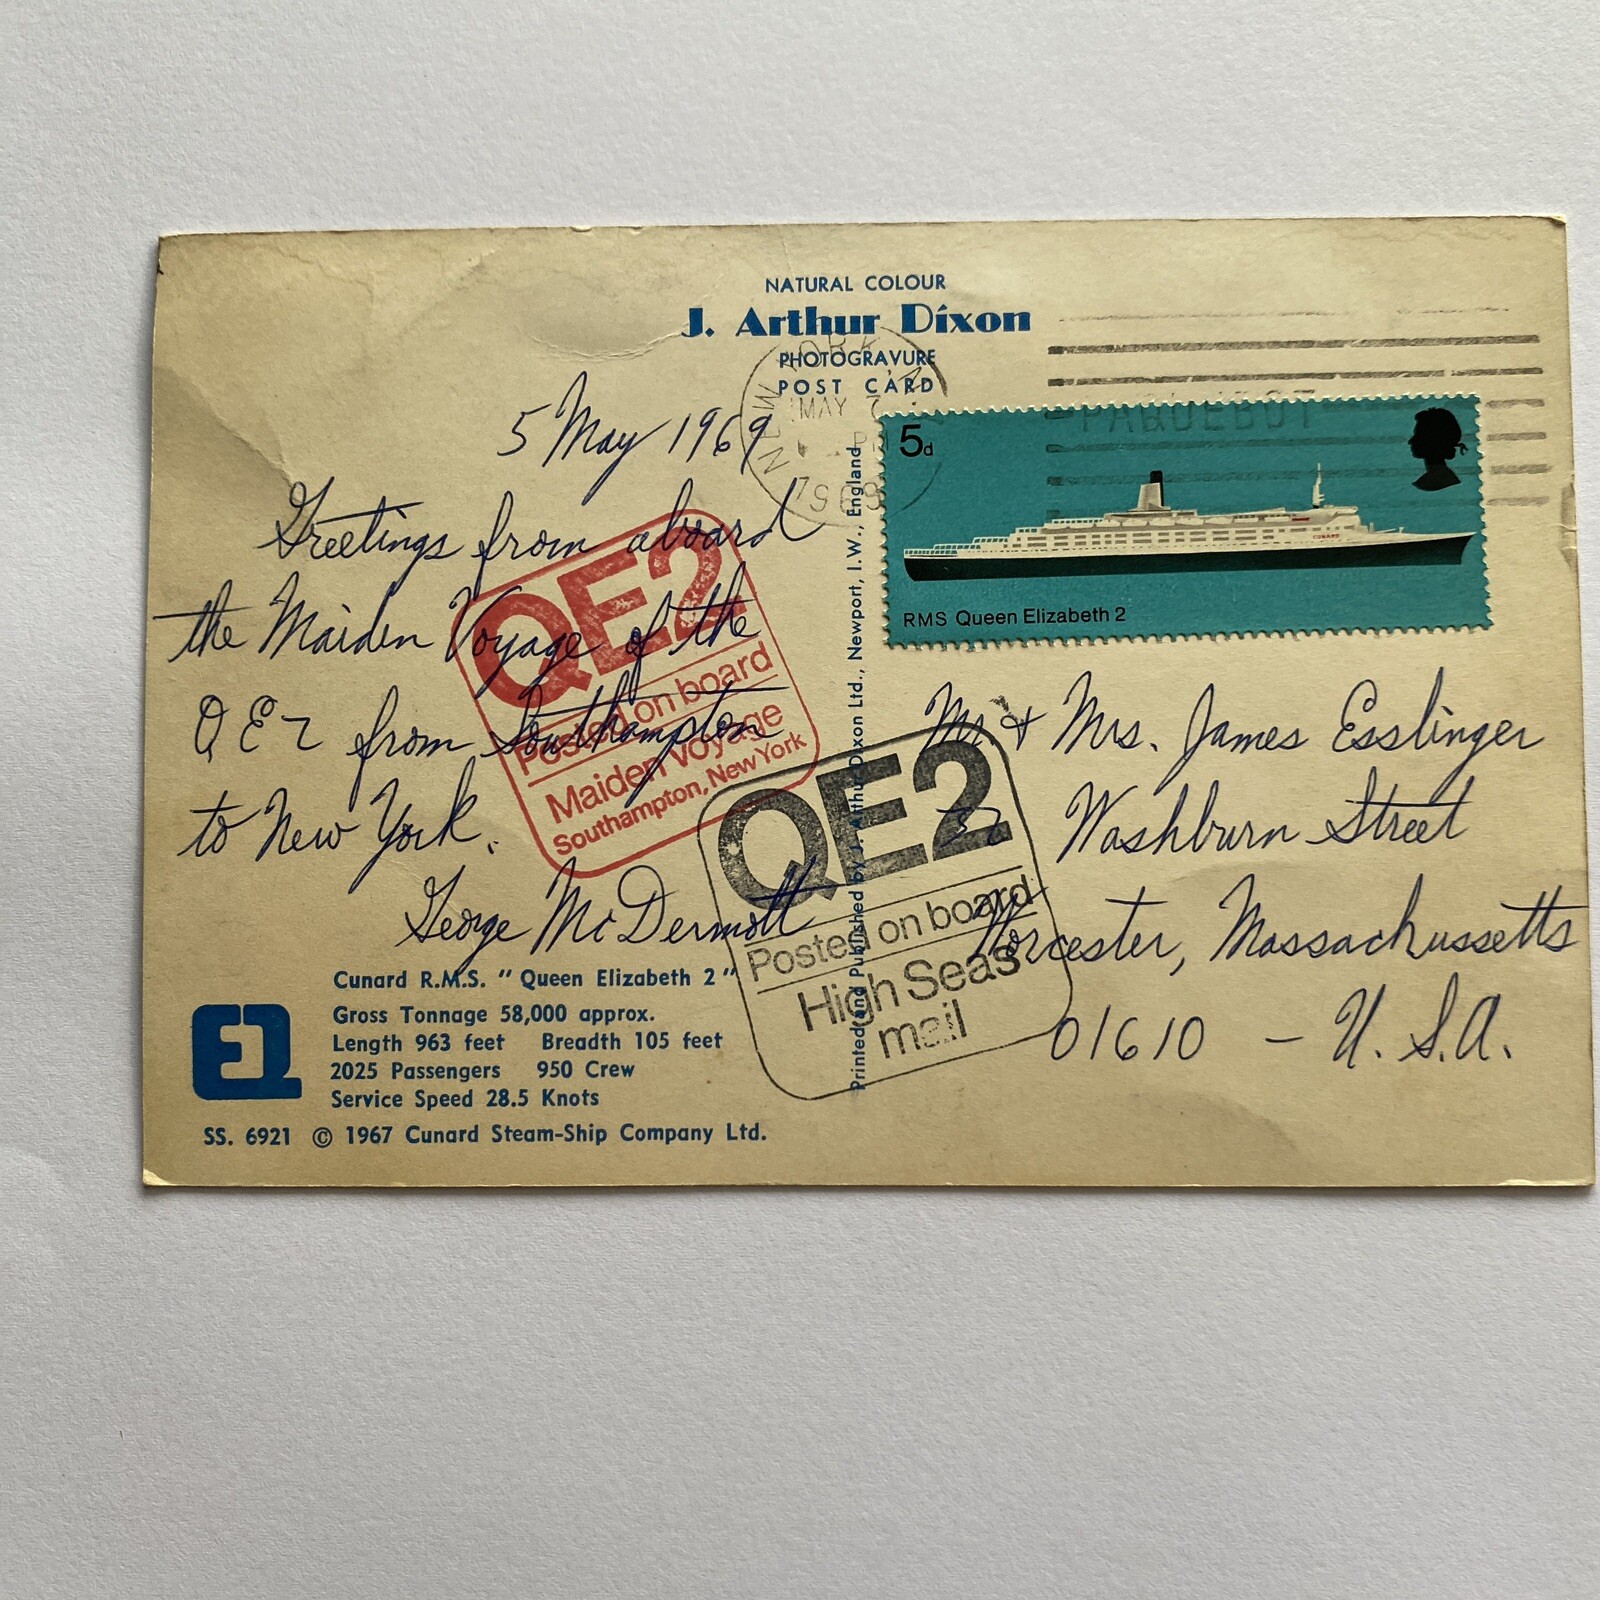 NATURAL COLOUR
J. Arthur Dixon
PHOTOGRAVURE
POST CARD
NEW YORK
MAY 7
PM
1969
PAQUEBOT
5d
RMS Queen Elizabeth 2
CUNARD
5 May 1969
Greetings from aboard
the Maiden Voyage of the
QE2 from Southampton
to New York.
George McDermott
QE2
Posted on board
Maiden Voyage
Southampton, New York
QE2
Posted on board
High Seas
mail
Printed and Published by J. Arthur Dixon Ltd., Newport, I.W., England
Mr. & Mrs. James Esslinger
Washburn Street
Worcester, Massachussetts
01610 - U.S.A.
Cunard R.M.S. "Queen Elizabeth 2"
Gross Tonnage 58,000 approx.
Length 963 feet Breadth 105 feet
2025 Passengers 950 Crew
Service Speed 28.5 Knots
SS. 6921 © 1967 Cunard Steam-Ship Company Ltd.